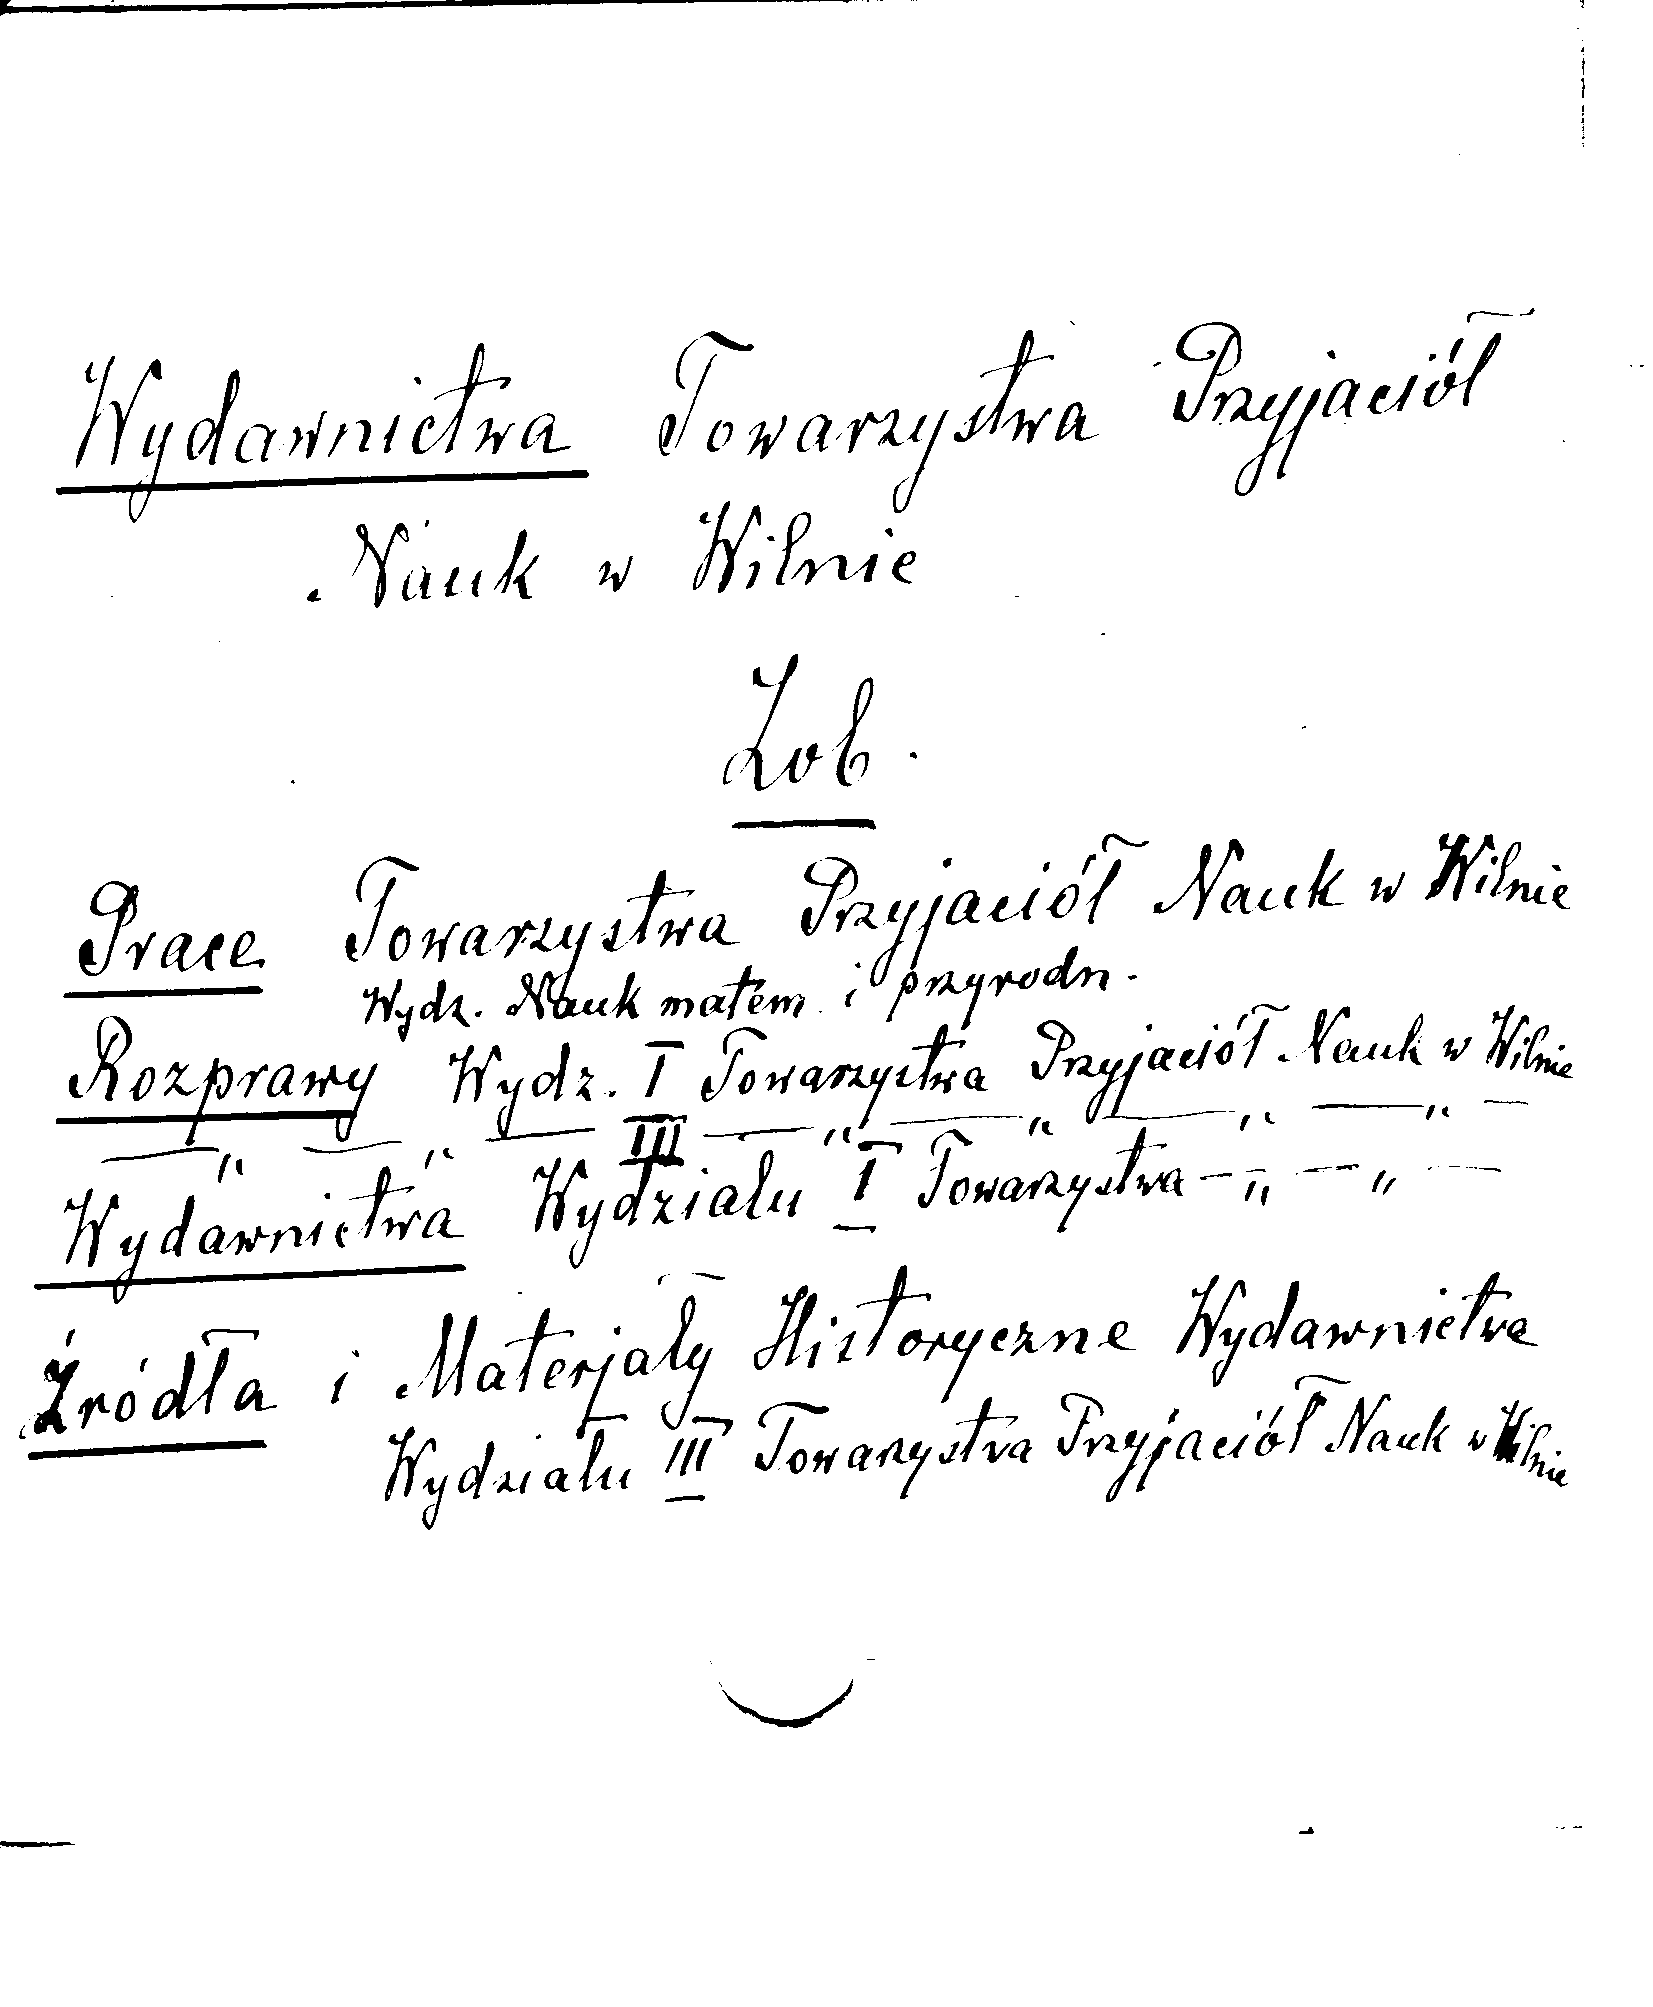 Wydawnictwa Towarzystwa Przyjaciół
Nauk w Wilnie
Zob.
Prace Towarzystwa Przyjaciół Nauk w Wilnie
Wydz. Nauk matem. i przyrodn.
Rozprawy Wydz. I Towarzystwa Przyjaciół Nauk w Wilnie
— „ — „ — III — „ — „ — „ — „ —
Wydawnictwa Wydziału I Towarzystwa — „ — „ —
Źródła i Materjały Historyczne Wydawnictwa
Wydziału III Towarzystwa Przyjaciół Nauk w Wilnie